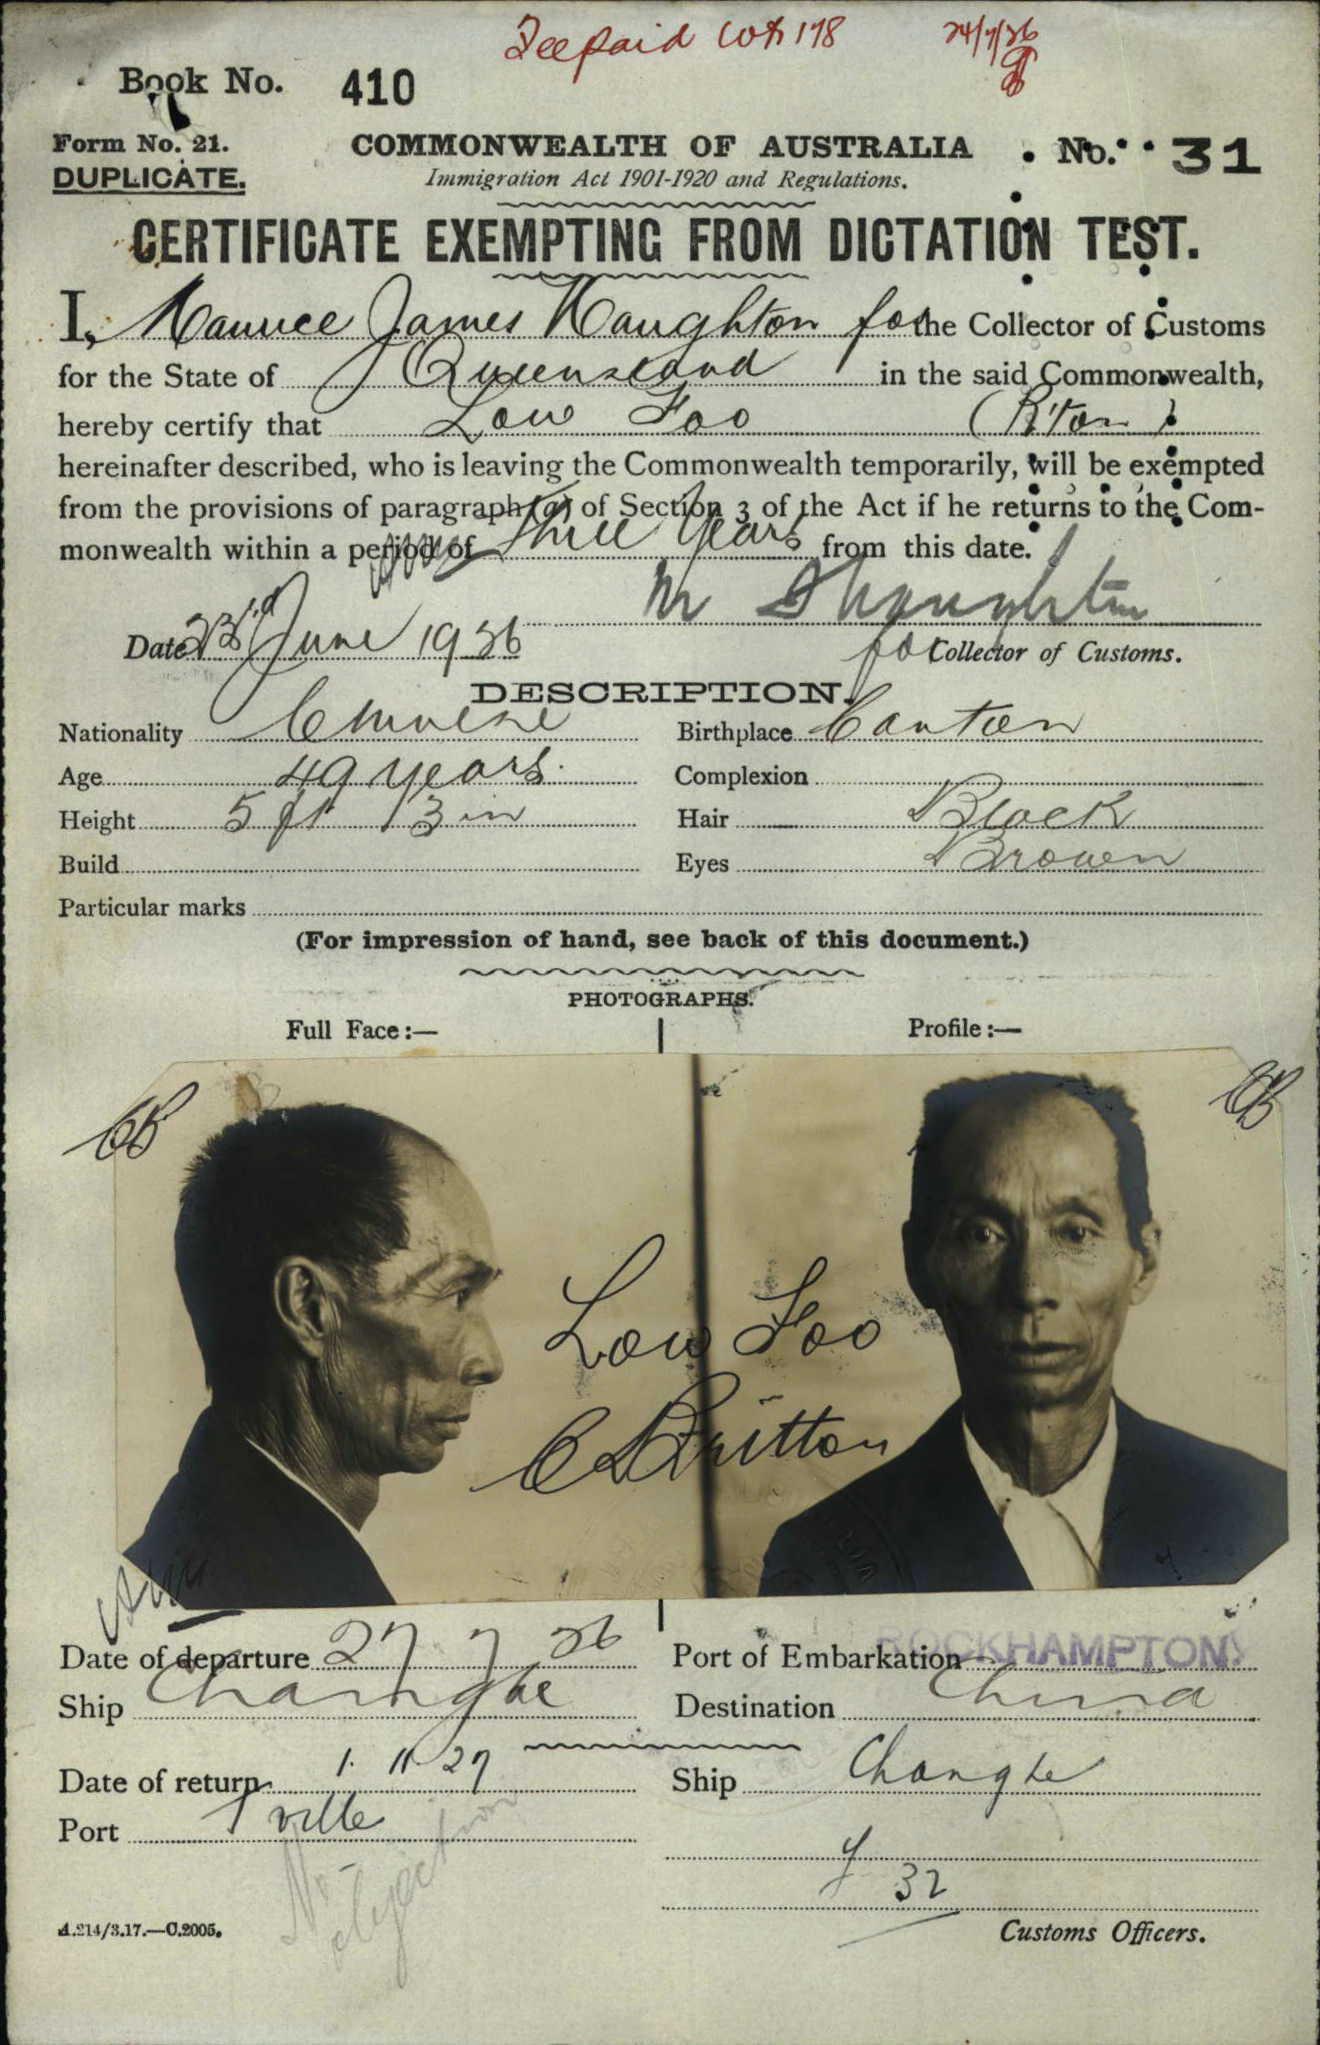 Fee paid
24/7/26
Book No. 410
Form No. 21.
COMMONWEALTH OF AUSTRALIA
No. 31
DUPLICATE.
Immigration Act 1901-1920 and Regulations.
CERTIFICATE EXEMPTING FROM DICTATION TEST.
I, Maurice James Naughton for the Collector of Customs
for the State of Queensland in the said Commonwealth,
hereby certify that Low Foo (R'ton)
hereinafter described, who is leaving the Commonwealth temporarily, will be exempted
from the provisions of paragraph (a) of Section 3 of the Act if he returns to the Com-
monwealth within a period of Three Years from this date.
Date 23rd June 1926
for Collector of Customs.
DESCRIPTION.
Nationality Chinese Birthplace Canton
Age 49 years. Complexion
Height 5 ft 3 in Hair Black
Build Eyes Brown
Particular marks
(For impression of hand, see back of this document.)
PHOTOGRAPHS.
Full Face:— Profile:—
CB CB
Low Foo
C Britton
Date of departure 27 7 26 Port of Embarkation ROCKHAMPTON
Ship Changte Destination China
Date of return 1. 11. 27 Ship Changte
Port T'ville
No objection
32
A.214/3.17.—C.2005.
Customs Officers.